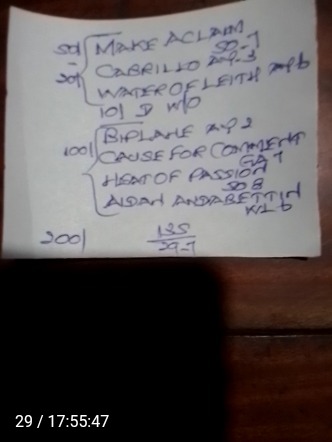 50/ MAKE A CLAIM
SO-7
20/ CABRILLO AY-3
WATER OF LEITH AY6
10/ D W/O
100/ BIPLANE AY 2
CAUSE FOR COMMENT
GA 7
HEAT OF PASSION
SO 8
AIDAN ANDABETTIN
200/ 135
29-7
29 / 17:55:47